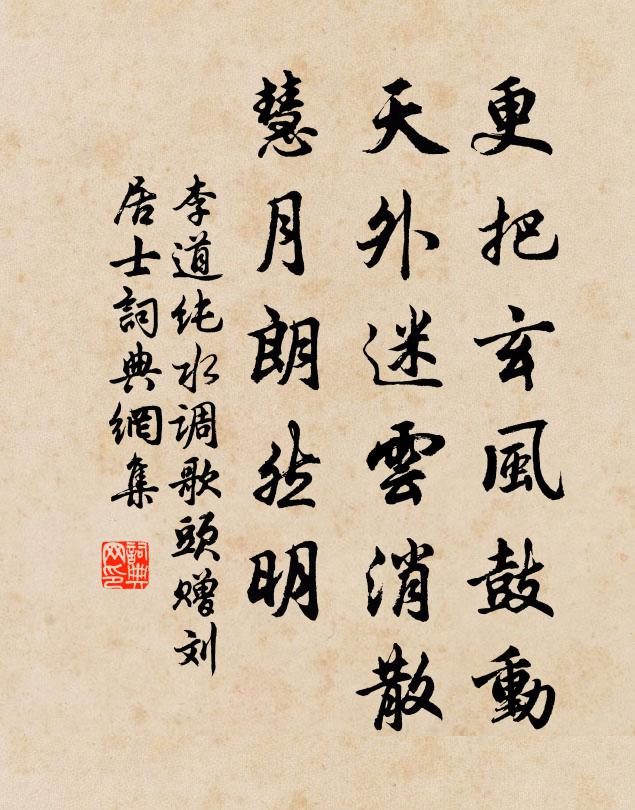 更把玄風鼓動
天外迷雲消散
慧月朗然明
李道纯水调歌頭赠刘
居士詞典網集
詞典
网印